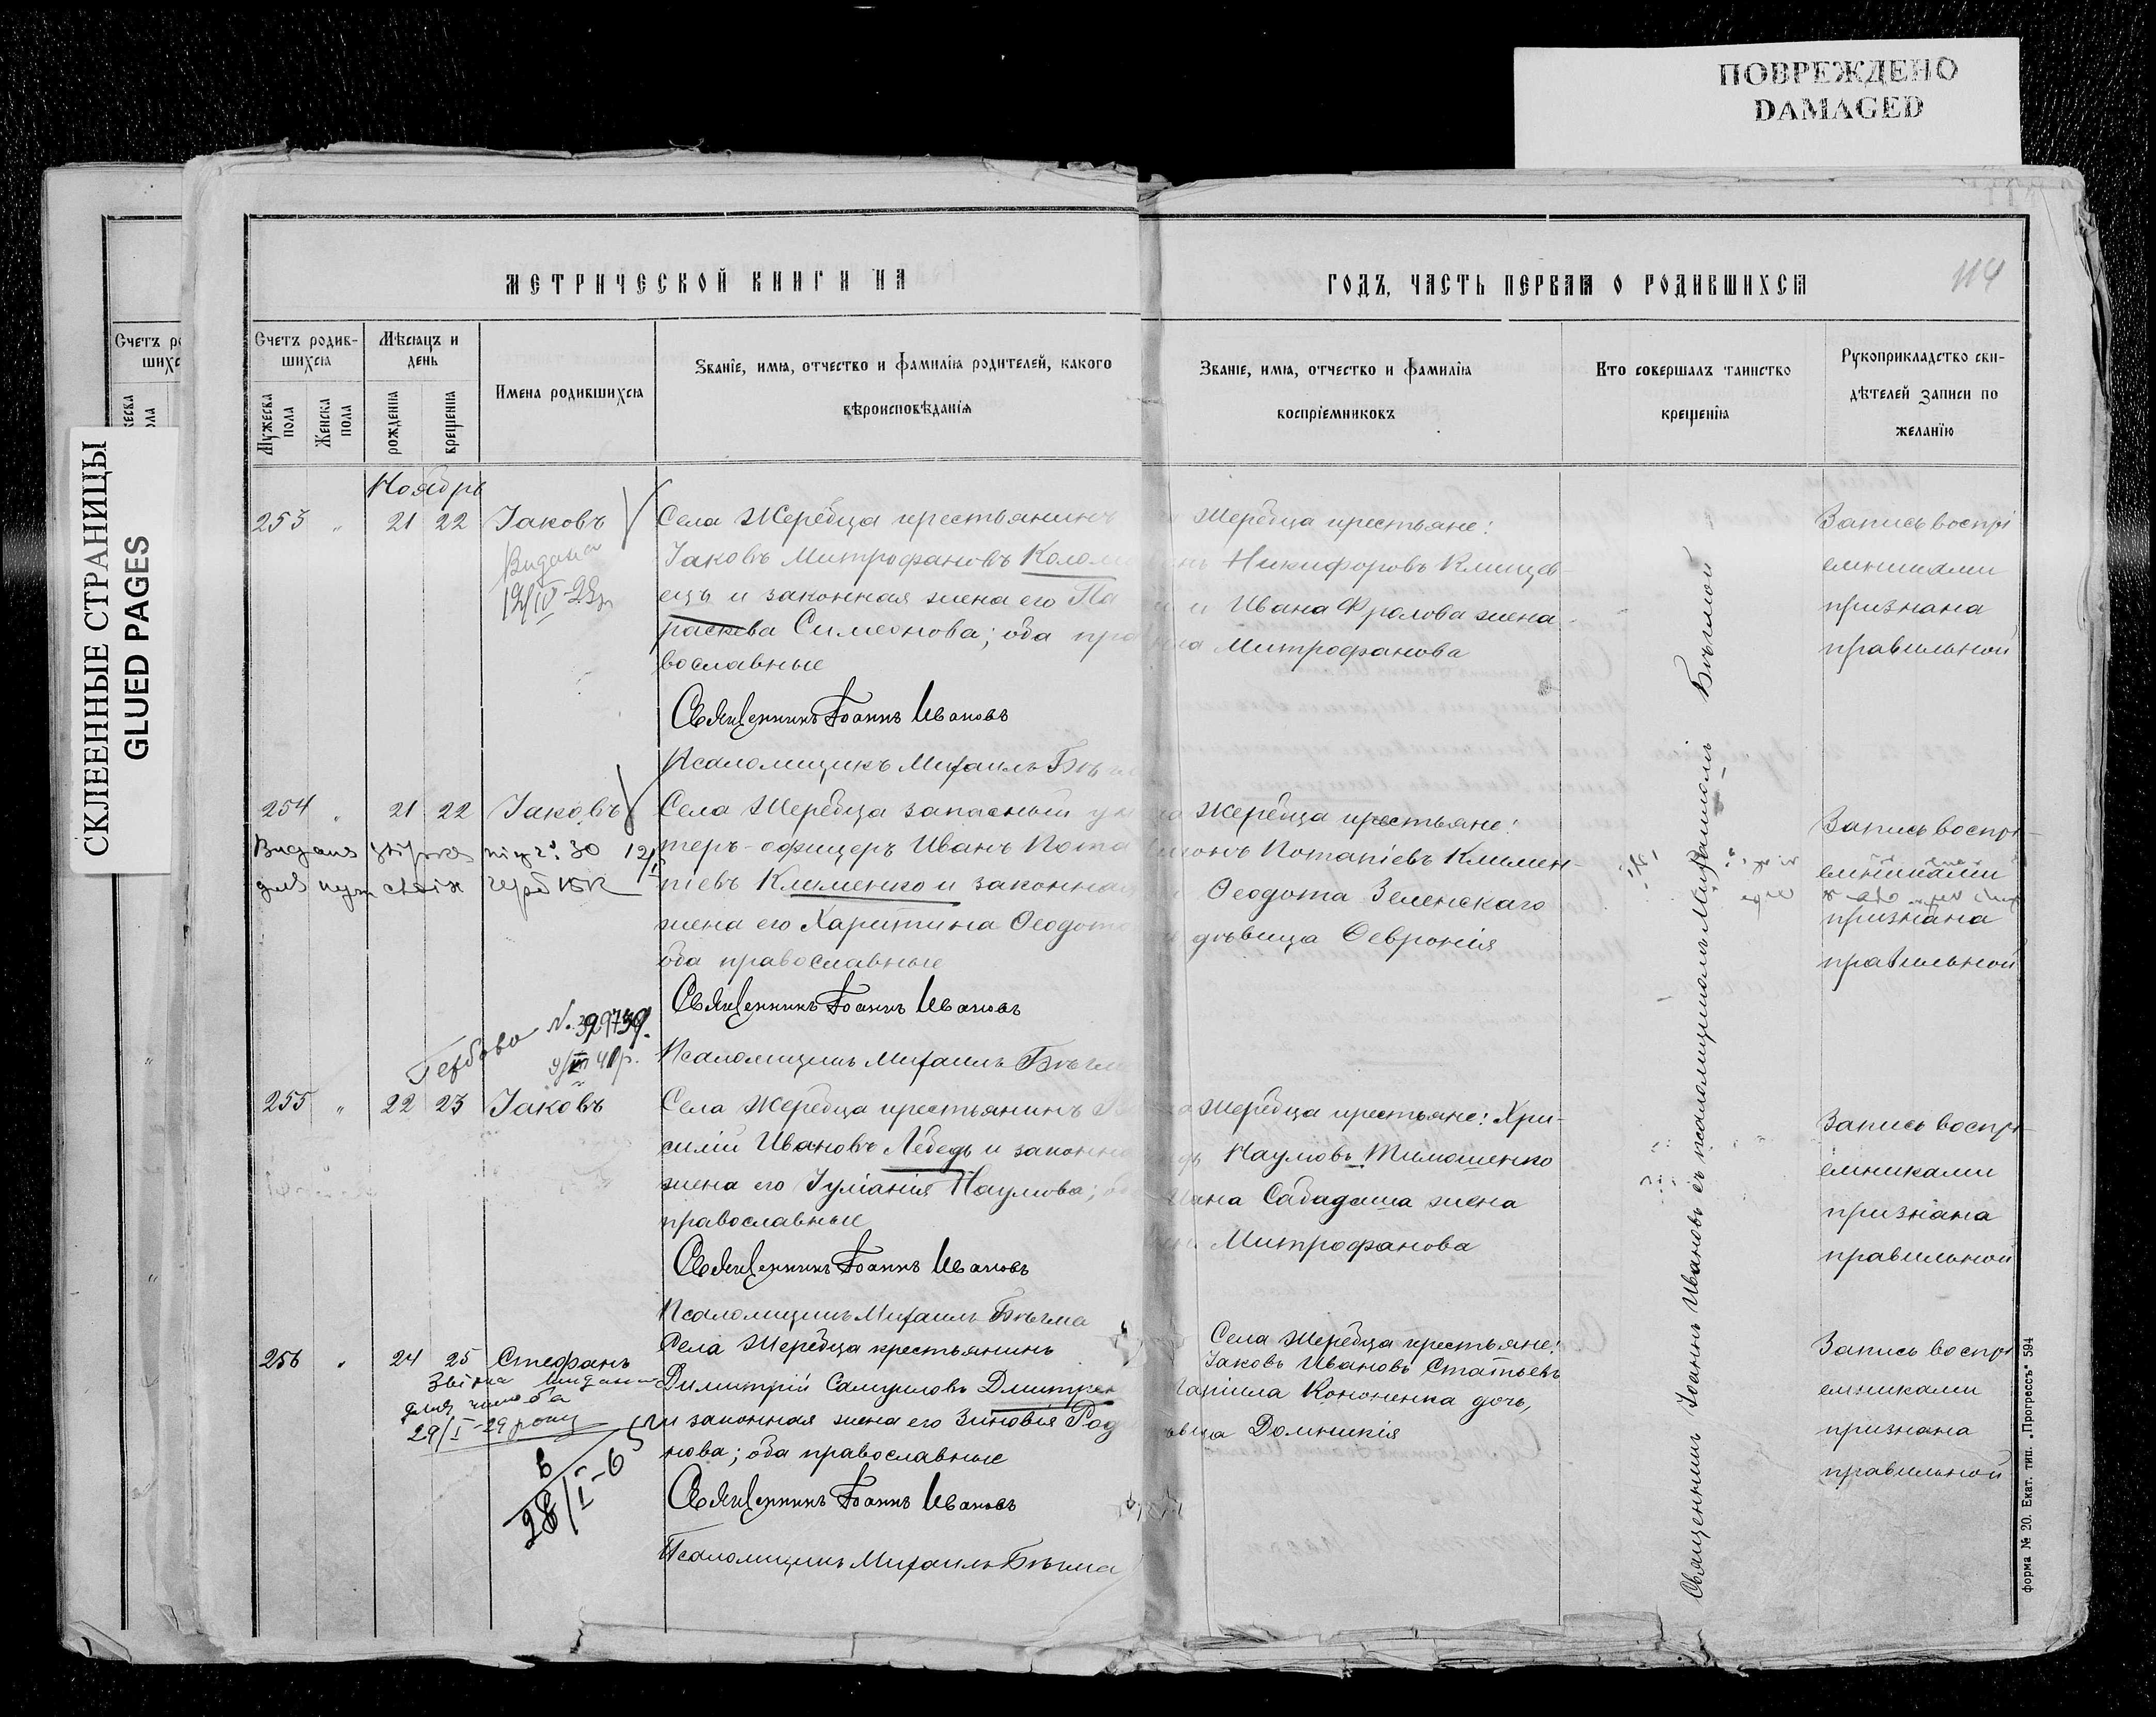 ПОВРЕЖДЕНО
DAMAGED
СКЛЕЕННЫЕ СТРАНИЦЫ
GLUED PAGES
МЕТРИЧЕСКОЙ КНИГИ НА
ГОДЪ, ЧАСТЬ ПЕРВАЯ О РОДИВШИХСЯ
114
Счетъ родив-
шихся
Мужеска пола
Женска пола
Мѣсяцъ и
день
рожденія
крещенія
Имена родившихся
Званіе, имя, отчество и фамилія родителей, какого
вѣроисповѣданія
Званіе, имя, отчество и фамилія
воспріемниковъ
Кто совершалъ таинство
крещенія
Рукоприкладство сви-
дѣтелей записи по
желанію
Ноябрь
253 " 21 22 Іаковъ
Видана
12/IV-29р
Села Жеребца крестьянинъ
Іаковъ Митрофановъ Колом
ецъ и законная жена его Па
раскева Симеонова; оба пра
вославные
Священникъ Іоаннъ Ивановъ
Псаломщикъ Михаилъ Бѣг
Жеребца крестьяне:
Никифоровъ Клищев-
и Ивана Фролова жена
Митрофанова
Запись воспрі
емниками
признана
правильной
254 " 21 22 Іаковъ
Села Жеребца запасный ун
теръ-офицеръ Иванъ Пота
піевъ Клименко и законная
жена его Харитина Ѳеодото
оба православные
Священникъ Іоаннъ Ивановъ
Псаломщикъ Михаилъ Бѣгл
Жеребца крестьяне:
Потапіевъ Климен-
Ѳеодота Зеленскаго
дѣвица Ѳевронія
Запись воспрі-
емниками
признана
правильной
255 " 22 23 Іаковъ
Села Жеребца крестьянинъ
силій Ивановъ Лебедь и законна
жена его Іуліанія Наумова; об
православные
Священникъ Іоаннъ Ивановъ
Псаломщикъ Михаилъ Бѣгма
Жеребца крестьяне: Хри-
Наумовъ Тимошенко
Сабадаша жена
Митрофанова
Запись воспрі-
емниками
признана
правильной
256 " 24 25 Стефанъ
29/I-29 року
28/I-6
Села Жеребца крестьянинъ
Димитрій Самуиловъ Дмитрен
и законная жена его Зиновія Род
нова; оба православные
Священникъ Іоаннъ Ивановъ
Псаломщикъ Михаилъ Бѣгма
Села Жеребца крестьяне:
Іаковъ Ивановъ Статьевъ
Кононенка дочь,
Домникія
Запись воспрі
емниками
признана
правильной
Священникъ Іоаннъ Ивановъ съ псаломщикомъ Михаиломъ Бѣгмой
форма № 20. Екат. тип. „Прогрессъ" 594